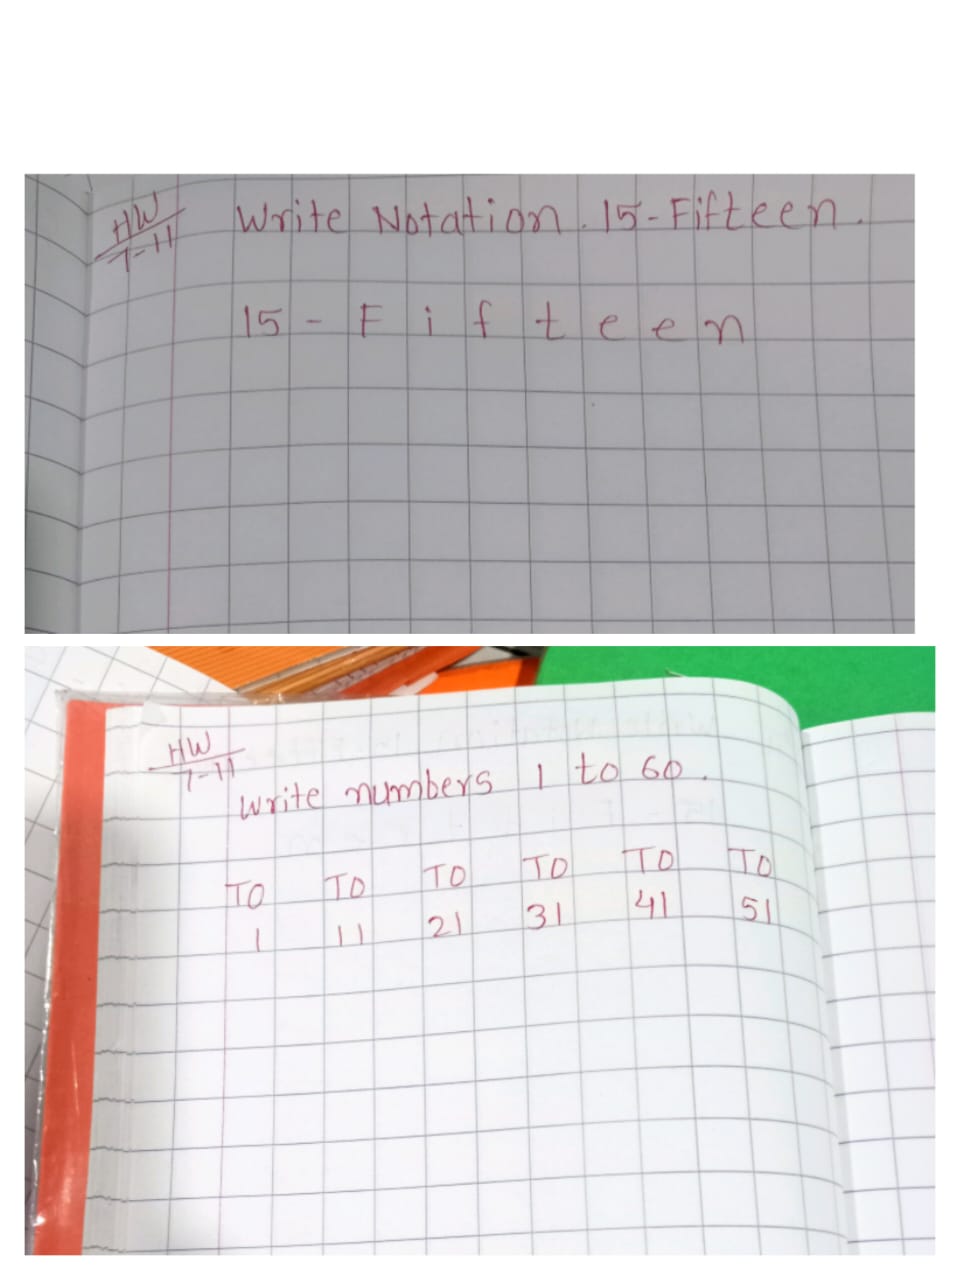 HW
7-11
Write Notation. 15-Fifteen.
15 - F i f t e e n
HW
7-11
Write numbers 1 to 60.
TO TO TO TO TO TO
1 11 21 31 41 51